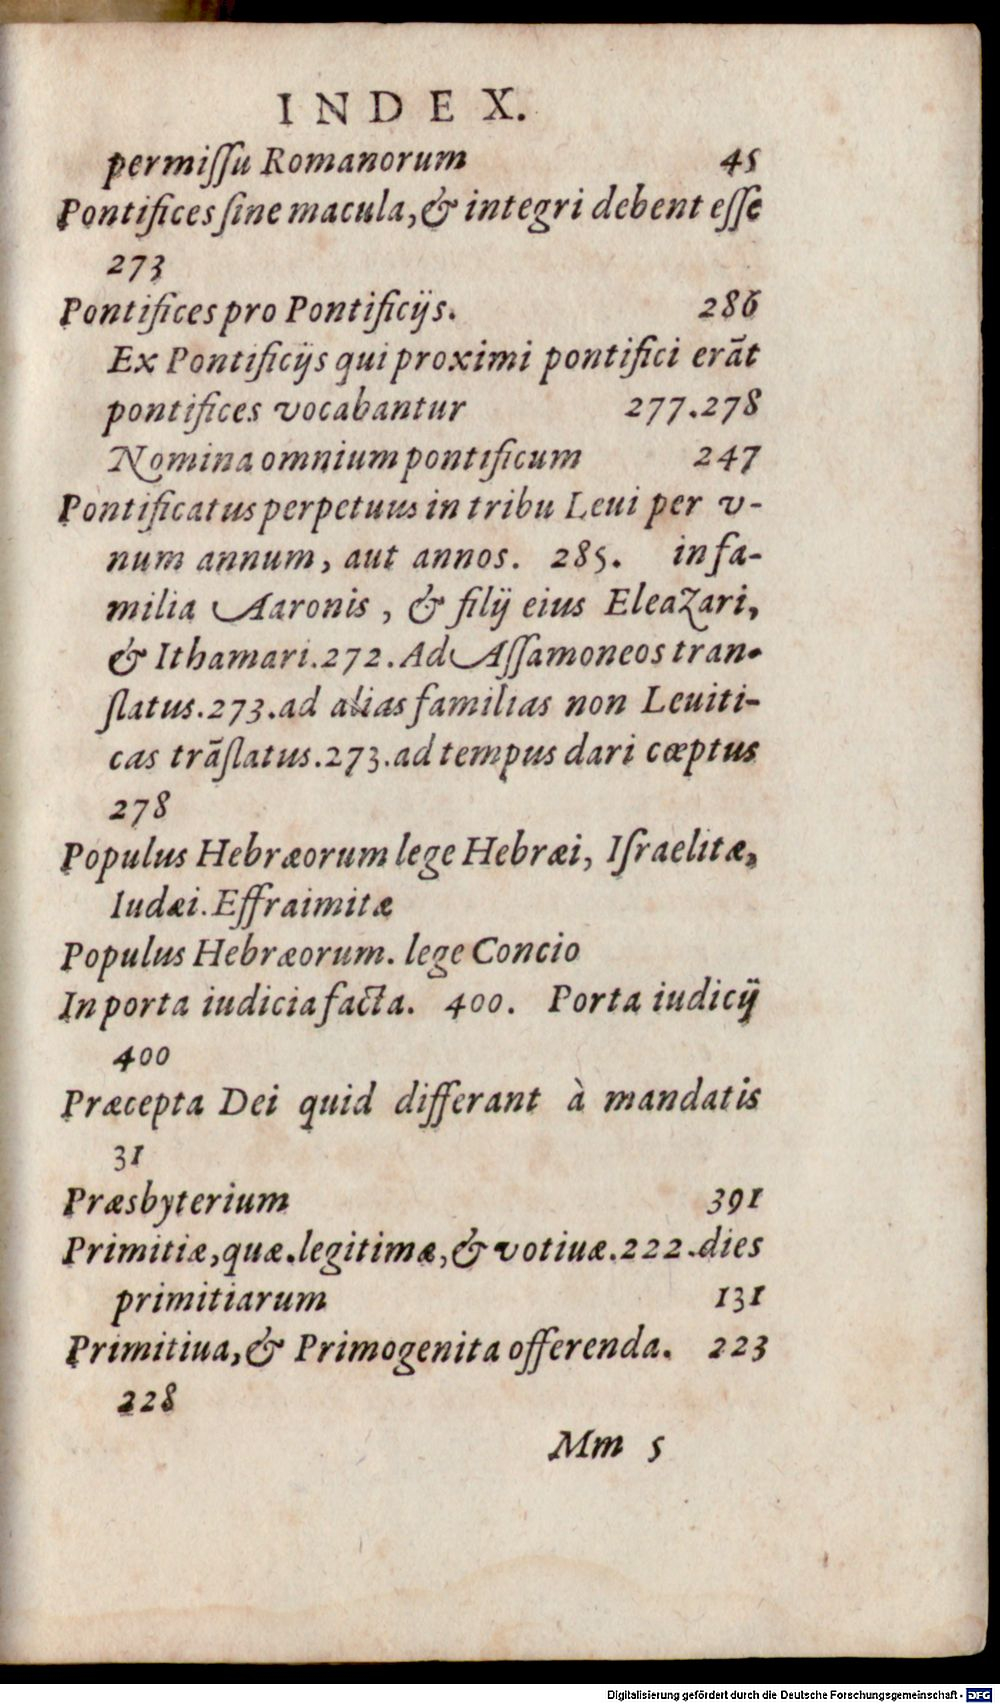 INDEX.
permiſſu Romanorum 45
Pontifices ſine macula, & integri debent eſſe
273
Pontifices pro Pontificijs. 286
Ex Pontificijs qui proximi pontifici erãt
pontifices vocabantur 277.278
Nomina omnium pontificum 247
Pontificatus perpetuus in tribu Leui per v-
num annum, aut annos. 285. in fa-
milia Aaronis, & filij eius Eleazari,
& Ithamari.272. Ad Aſſamoneos tran-
ſlatus.273.ad alias familias non Leuiti-
cas trãſlatus.273.ad tempus dari cœptus
278
Populus Hebræorum lege Hebræi, Iſraelitæ,
Iudæi. Effraimitæ
Populus Hebræorum. lege Concio
In porta iudicia facta. 400. Porta iudicij
400
Præcepta Dei quid differant à mandatis
31
Præsbyterium 391
Primitiæ, quæ.legitimæ, & votiuæ.222.dies
primitiarum 131
Primitiua, & Primogenita offerenda. 223
228
Mm 5
Digitalisierung gefördert durch die Deutsche Forschungsgemeinschaft - DFG